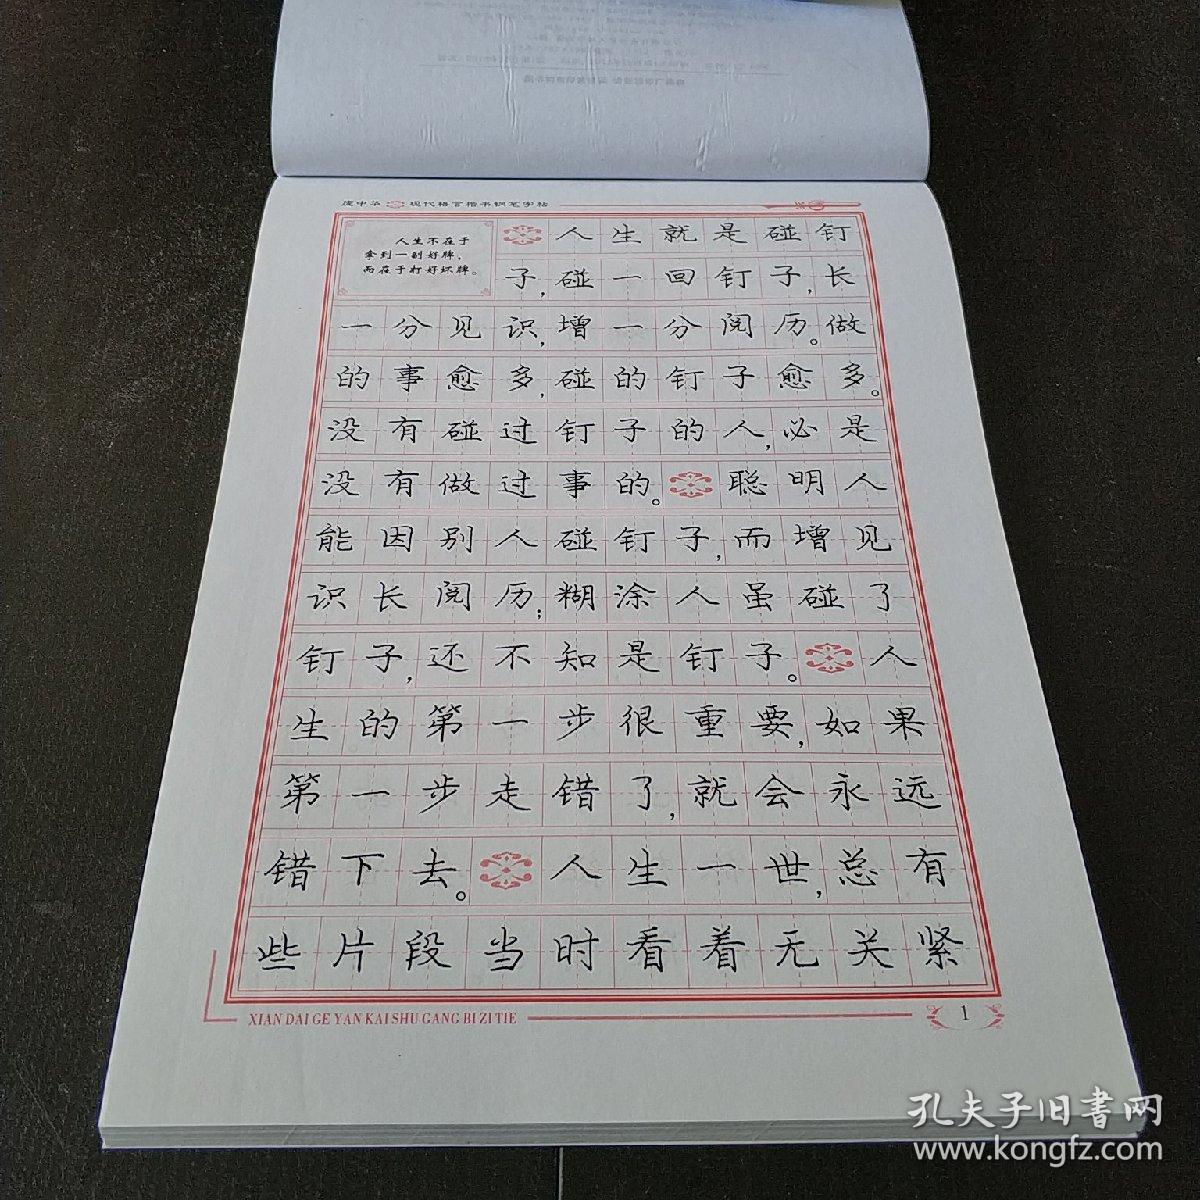 庞中华 现代格言楷书钢笔字帖
人生不在于
拿到一副好牌，
而在于打好坏牌。
人生就是碰钉
子，碰一回钉子，长
一分见识，增一分阅历。做
的事愈多，碰的钉子愈多。
没有碰过钉子的人，必是
没有做过事的。聪明人
能因别人碰钉子，而增见
识长阅历；糊涂人虽碰了
钉子，还不知是钉子。人
生的第一步很重要，如果
第一步走错了，就会永远
错下去。人生一世，总有
些片段当时看着无关紧
XIAN DAI GE YAN KAI SHU GANG BI ZI TIE
1
孔夫子旧书网
www.kongfz.com